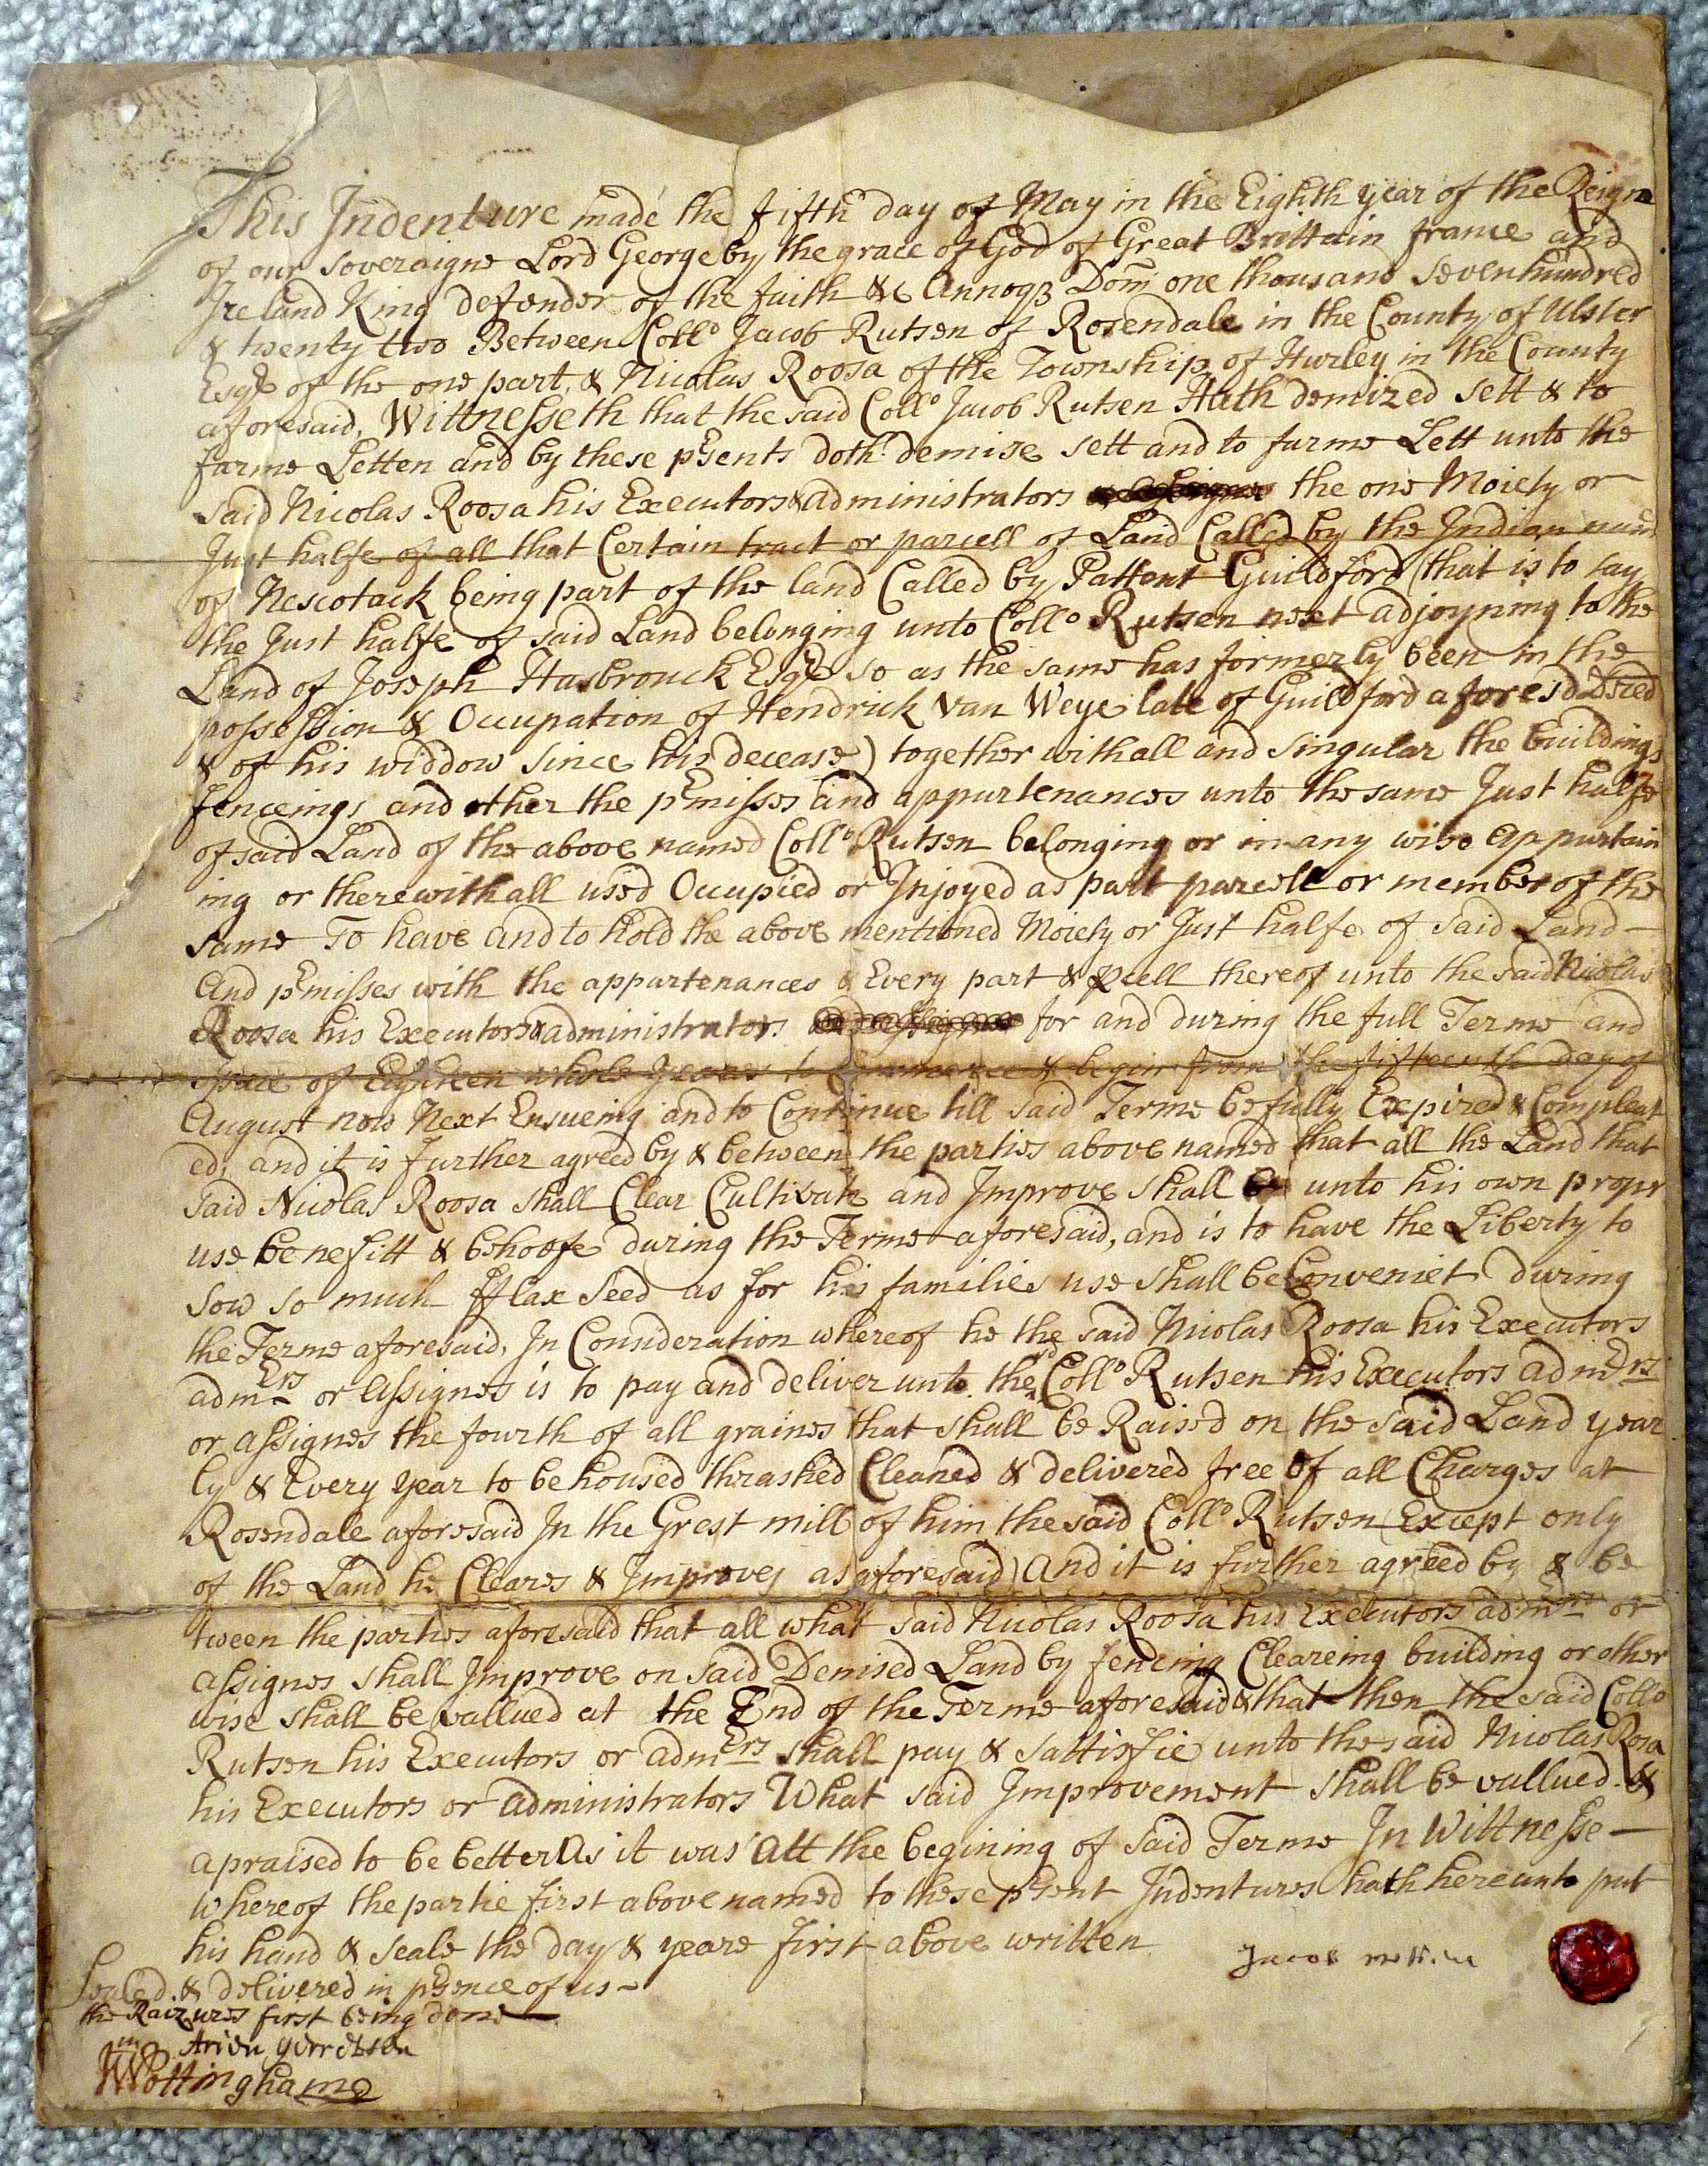 This Indenture made the fifth day of May in the Eighth year of the Reign
of our soveraigne Lord George by the grace of God of Great Brittain france and
Ireland King defender of the faith &c Annoqz Dom one thousand Sevenhundred
& twenty two Between Collo Jacob Rutsen of Rosendale in the County of Ulster
Esqr of the one part, & Nicolas Roosa of the Township of Hurley in the County
aforesaid, Wittnesseth that the said Collo Jacob Rutsen Hath demized sett & to
farme Letten and by these psents doth demise sett and to farme Lett unto the
said Nicolas Roosa his Executors & administrators the one Moiety or
Just halfe of all that Certain tract or parcell of Land Called by the Indian name
of Nescotack being part of the land Called by Pattent Guildford (that is to say
the Just halfe of said Land belonging unto Collo Rutsen next adjoyning to the
Land of Joseph Hasbrouck Esqr so as the same has formerly been in the
possession & Occupation of Hendrick Van Weye late of Guildford aforesd Dsced
& of his widdow since his decease) together withall and singular the buildings
fenceings and other the pmisses and appurtenances unto the same Just halfe
of said Land of the above named Collo Rutsen belonging or in any wise appurtain
ing or therewithall used Occupied or Injoyed as part parcell or member of the
same To have and to hold the above mentioned Moiety or Just halfe of said Land
And pmisses with the appurtenances & Every part & pcell thereof unto the said Nicolas
Roosa his Executors & administrators for and during the full Terme and
space of Eighteen whole yeares to Commence & begin from the fifteenth day of
August now Next Ensueing and to Continue till said Terme be fully Expired & Compleat
ed, and it is further agreed by & between the parties above named that all the Land that
said Nicolas Roosa shall Clear Cultivate and Improve shall be unto his own propr
use benefitt & behoofe during the Terme aforesaid, and is to have the Liberty to
sow so much fflax seed as for his families use shall be Conveniet during
the Terme aforesaid, In Consideration whereof he the said Nicolas Roosa his Executors
admErs or assignes is to pay and deliver unto the sd Collo Rutsen his Executors admErs
or assignes the fourth of all graines that shall be Raised on the said Land year
ly & Every year to be housed thrashed Cleaned & delivered free of all Charges at
Rosendale aforesaid In the Grest mill of him the said Collo Rutsen (Except only
of the Land he Cleares & Improves as aforesaid) And it is further agreed by & be
tween the parties aforesaid that all what said Nicolas Roosa his Executors admErs or
assignes shall Improve on said Demised Land by fencing Cleareing building or other
wise shall be vallued at the End of the Terme aforesaid & that then the said Collo
Rutsen his Executors or admErs shall pay & sattisfie unto the said Nicolas Rosa
his Executors or administrators What said Improvement shall be vallued &
apraised to be better As it was Att the begining of said Terme In Wittnesse
whereof the partie first above named to these psent Indentures hath hereunto put
his hand & seale the day & yeare first above written
Jacob Rutsen
Sealed & delivered in psence of us
the Raizures first being done
Arien Gerretsen
Wm Nottinghame